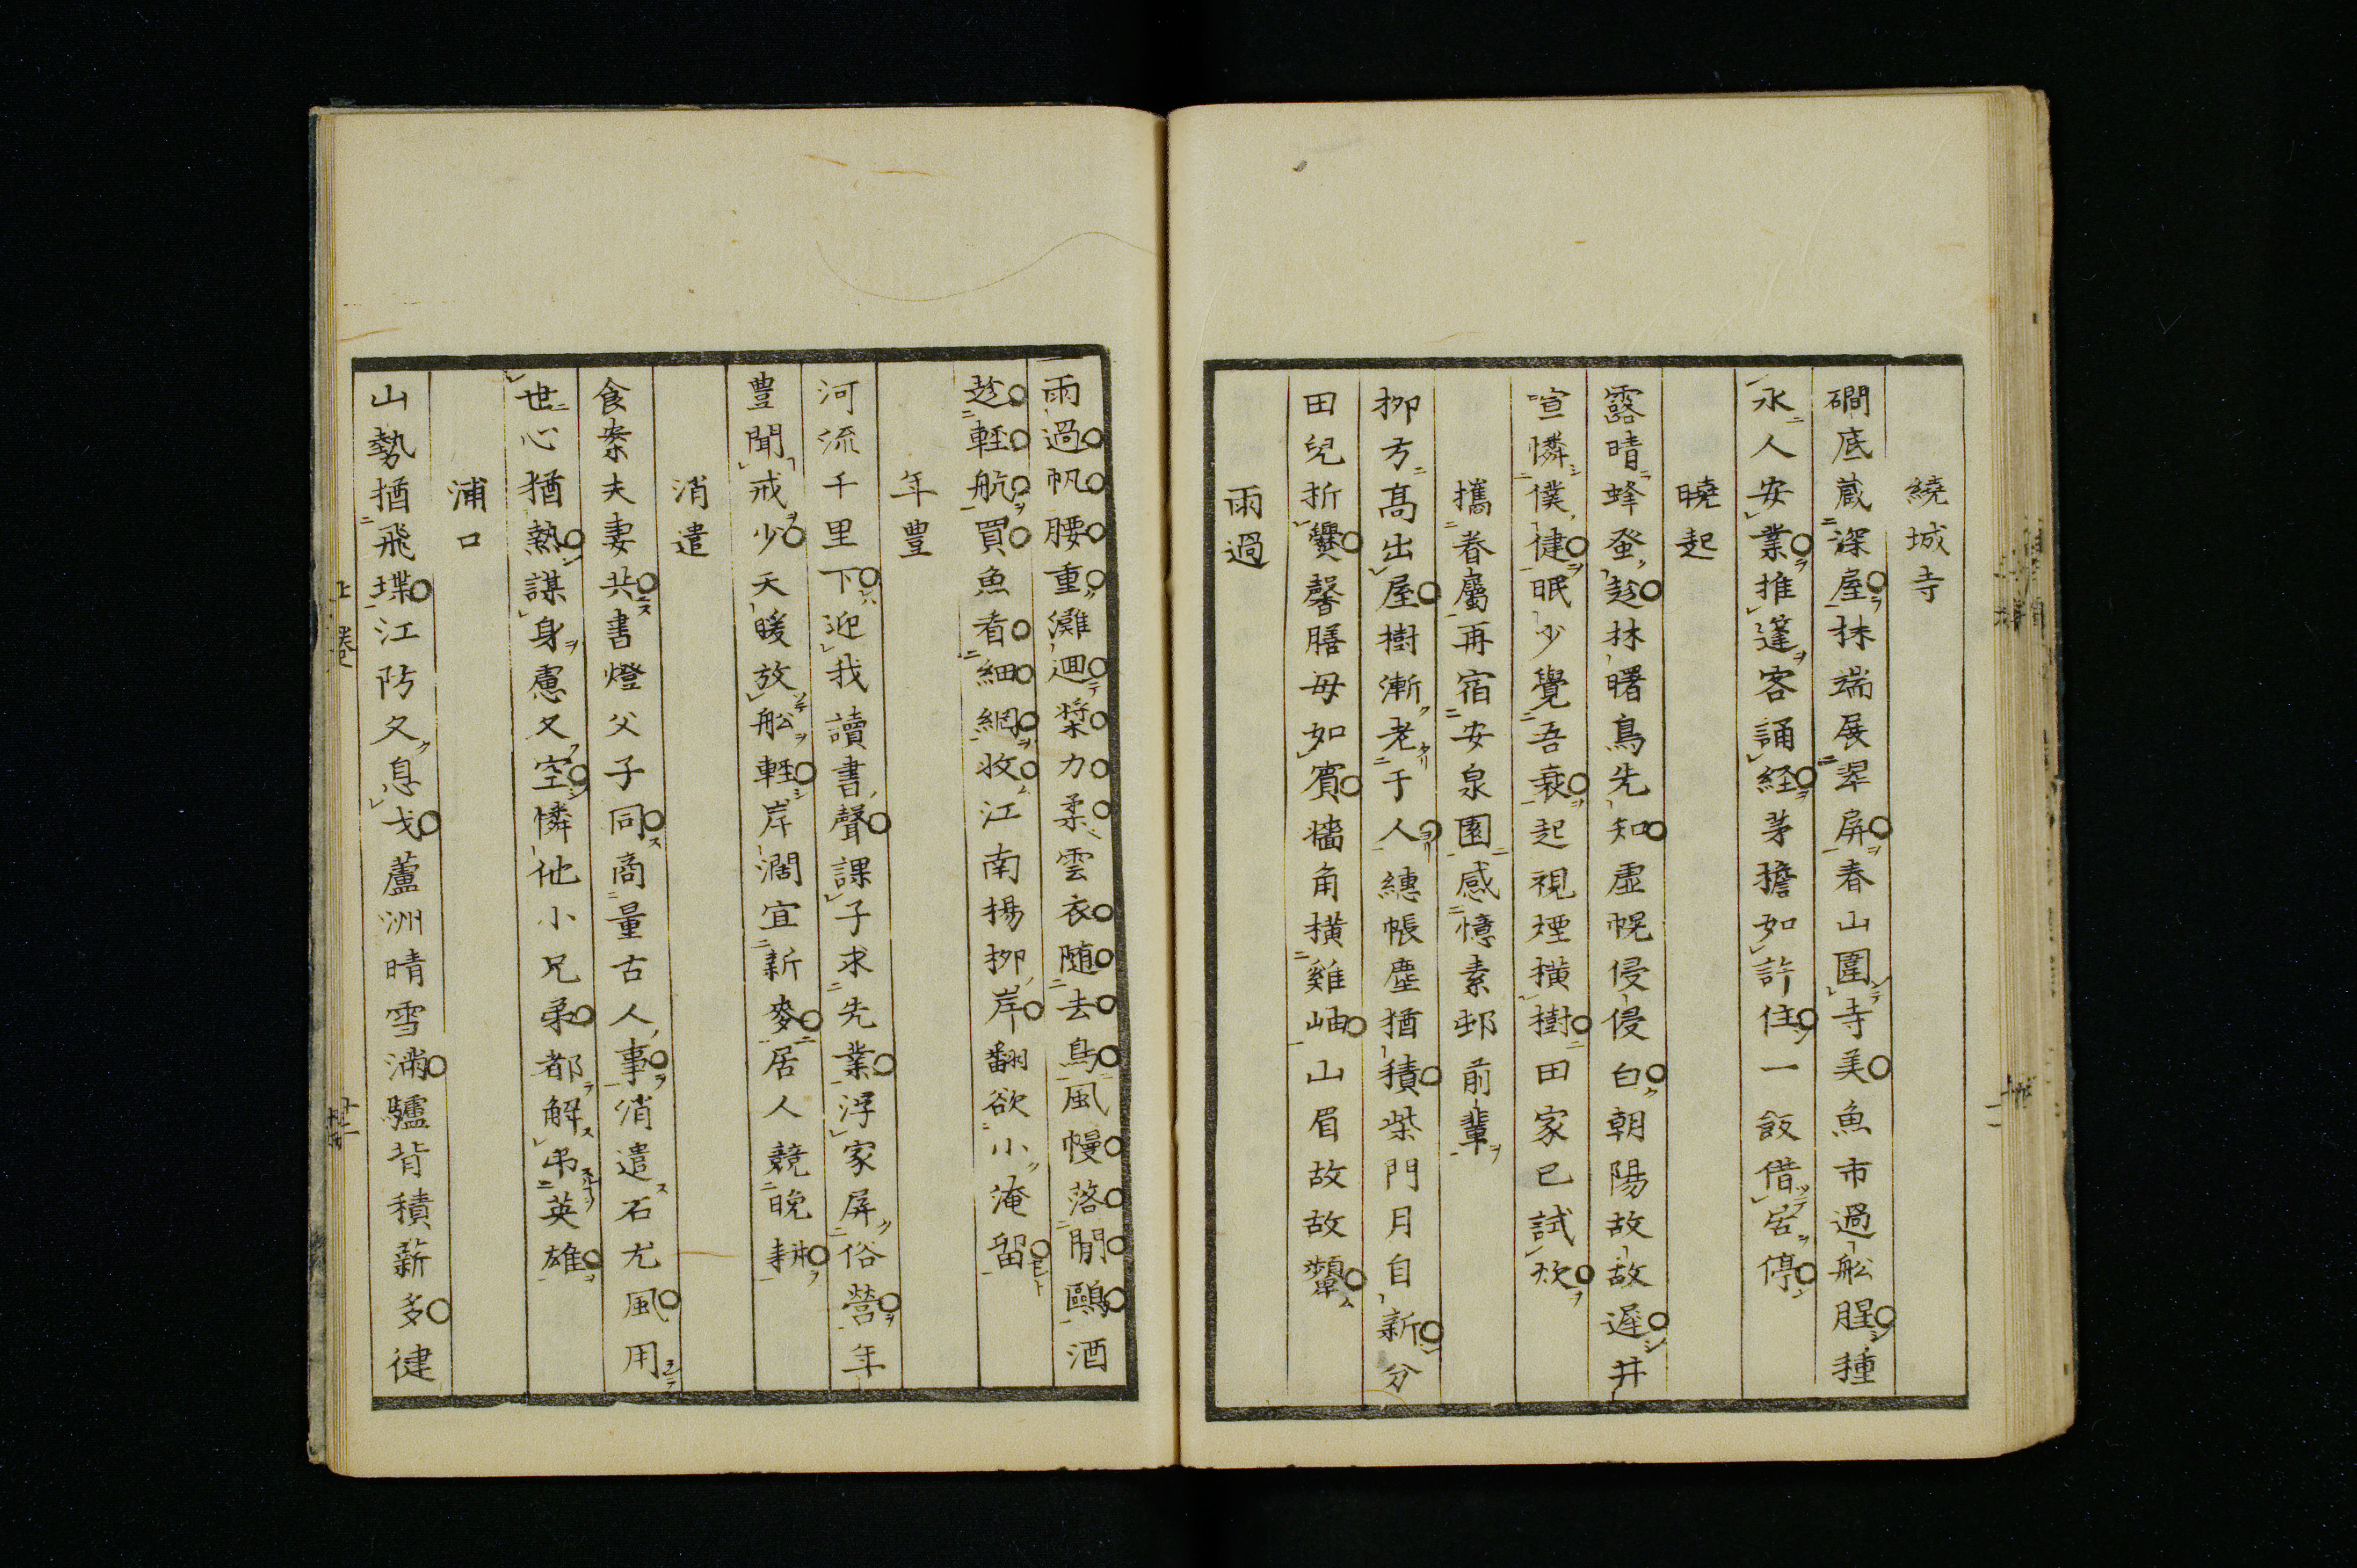 繞城寺
磵底蔵深屋林端展翠屏春山圍寺美魚市過舩腥種
永人安業推篷客誦経茅擔如許住一飯借居停
曉起
露晴蜂蛩趁林曙鳥先知虚幌侵侵白朝陽故故遲井
喧憐僕健眠少覺吾衰起視煙横樹田家已試炊
攜眷屬再宿安泉園感憶素邨前輩
柳方髙出屋樹漸老于人繐帳塵猶積柴門月自新分
田兒折爨馨膳母如賓墻角横雞岫山眉故故顰
雨過
雨過帆腰重灘迴槳力柔雲衣随去鳥風幔落閒鷗酒
趁輕航買魚看細網收江南楊柳岸翻欲小淹留
年豊
河流千里下迎我讀書聲課子求先業浮家屏俗營年
豊聞戒少天暖放舩輕岸濶宜新麥居人競晚耕
消遣
食案夫妻共書燈父子同商量古人事消遣石尤風用
世心猶熱謀身慮又空憐他小兄弟都解弔英雄
浦口
山勢猶飛堞江防久息戈蘆洲晴雪滿驢背積薪多健